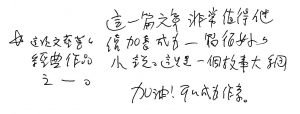 這一篇文章非常值得他
值加意成為一篇很好的
小說。這是一個故事大綱
加油!可以成為作家。
☆ 這篇文章是
經典作品
之一。